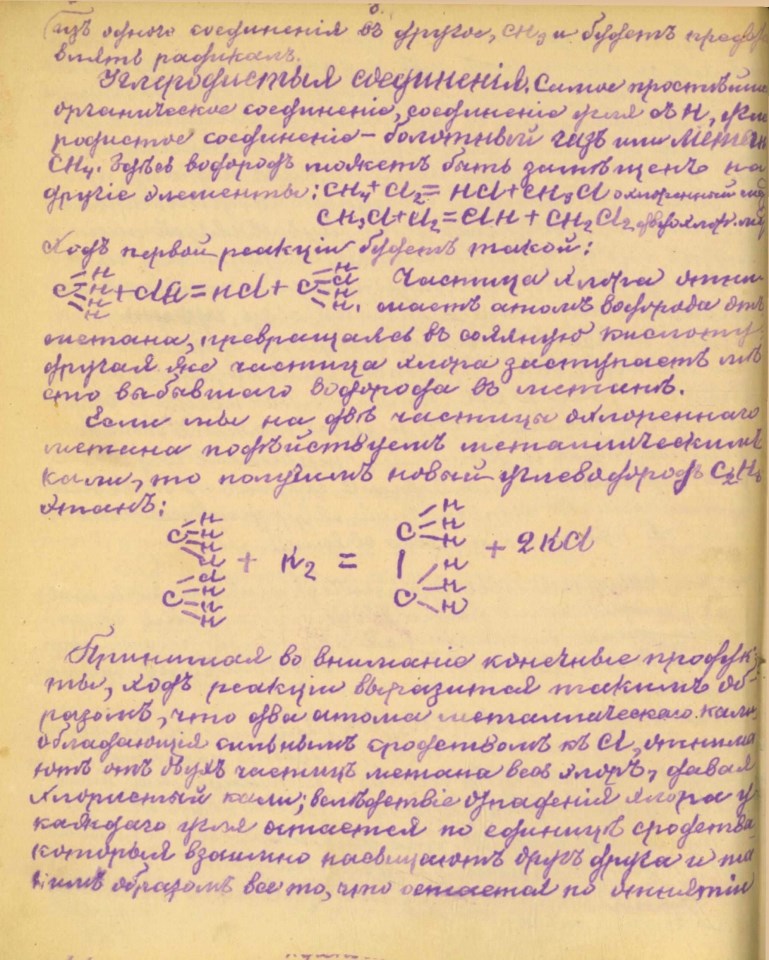 изъ одного соединенія въ другое, CH3 и будетъ предста
влять радикалъ.
Углеродистыя соединенія. Самое простѣйшее
органическое соединеніе, соединеніе угля съ H, угле
родистое соединеніе – болотный газъ или метанъ
CH4. Здѣсь водородъ можетъ быть замѣщенъ на
другіе элементы: CH4 + Cl2 = HCl + CH3Cl охлоренный
CH3Cl + Cl2 = ClH + CH2Cl2
Ходъ первой реакціи будетъ такой:
C H H H H + ClCl = HCl + C H Cl H H. Частица хлора отни
маетъ атомъ водорода отъ
метана, превращаясь въ соляную кислоту,
другая же частица хлора заступаетъ мѣ
сто выбывшаго водорода въ метанѣ.
Если мы на двѣ частицы охлореннаго
метана подѣйствуемъ металлическимъ
кали, то получимъ новый углеводородъ C2H6
этанъ:
C H H H Cl
C Cl H H H + K2 = C H H H | C H H H + 2KCl
Принимая во вниманіе конечные продук
ты, ходъ реакціи выразится такимъ об
разомъ, что два атома металлическаго кали
обладающія сильнымъ сродствомъ къ Cl, отнима
ютъ отъ двухъ частицъ метана весь хлоръ, давая
хлористый кали; вслѣдствіе отпаденія хлора у
каждаго угля остается по единицѣ сродства
которыя взаимно насыщаютъ другъ друга и та
кимъ образомъ все то, что остается по отнятіи